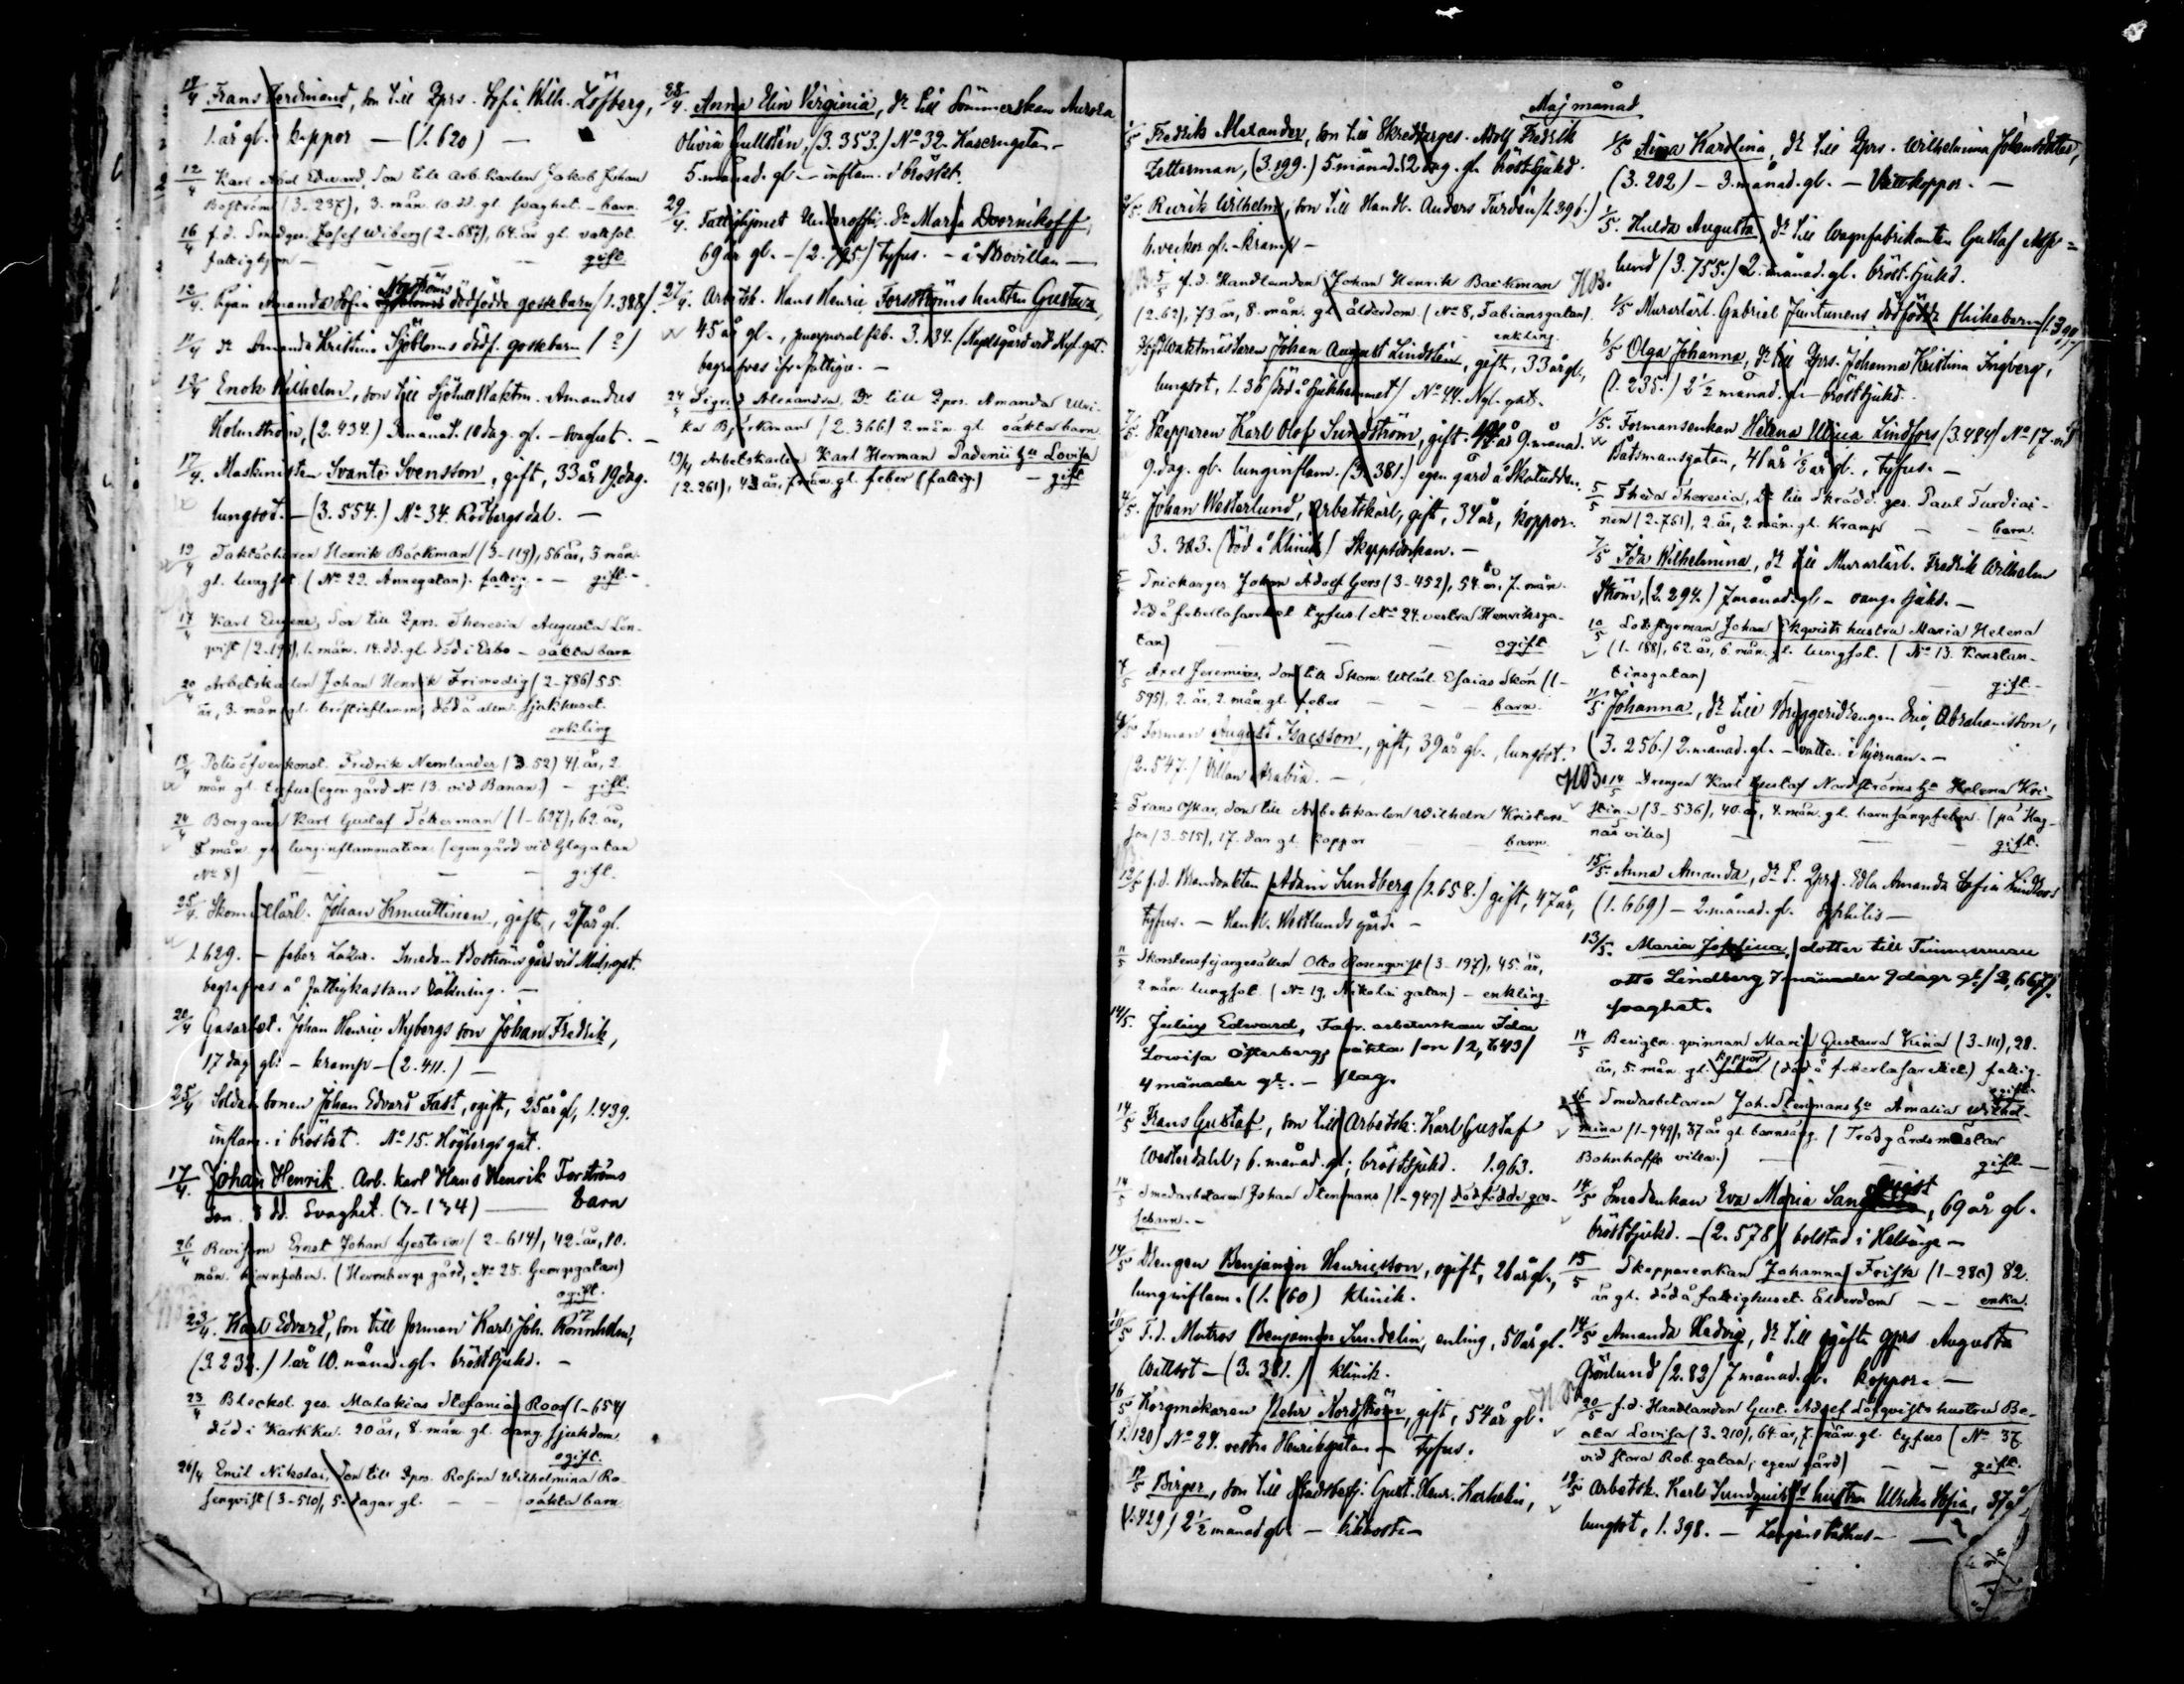 17/4 Frans Ferdinand, son till Qprs. Sofia Wilh. Löfberg,
1. år gl. koppor — (1. 620) —
12/4 Karl Abel Edward, Son till Arb. karlen Jakob Johan
Boström (3-237), 3. mån. 10. dd. gl. svaghet. - barn.
16/4 f.d. Smedges. Josef Wiberg (2-687), 64. år gl. vattsot.
fattighjon — gift
12/4. Pigan Amanda Sofia Nyströms dödfödde gossebarn (1. 328).
11/4 Dr Amanda Kristina Sjöbloms dödf. gossebarn (?)
13/4 Enok Wilhelm, son till Sjötull Waktm. Amandus
Holmström, (2. 434.) 3 månad. 10 dag. gl. - svaghet. -
17/4. Maskinisten Svante Svensson, gift, 33 år 19 dag.
lungsot. - (3. 554.) No 34. Rödbergs dal. -
19/4 Taktäckaren Henrik Bäckman (3-119), 56 år, 3 mån.
gl. lungsot (No 22. Annegatan). fattig. - gift. -
17/4 Karl Eugene, Son till Qprs. Theresia Augusta Lin-
qvist (2-193), 1. mån. 14. dd. gl. död i Esbo - oäkta barn
20/4 Arbetskarlen Johan Henrik Frimodig (2-786) 55.
år, 3. mån gl. bröstinflamm, död å alm. sjukhuset.
enkling
13/4 Polis öfverkonst. Fredrik Nemlander (3. 52) 41. år, 2.
mån gl. tyfus (egen gård No 13. vid Banan.) - gift.
24/4 Borgaren Karl Gustaf Tökerman (1-627), 62. år,
8. mån. gl lunginflammation. (egen gård vid Glogatan
No 8) — gift.
25/4. Skom. lärl. Johan Kmuttinen, gift, 27 år gl.
1. 629. - feber Smeden Boströms gård vid
begrafves å fattigkassans räkning. -
20/4 Gasarbet. Johan Henric Nybergs son Johan Fredrik,
17 dag gl: - kramp - (2. 411.) -
25/4 Soldatsonen Johan Edvard Fast, ogift, 25 år gl, 1. 439.
inflam. i bröstet. No 15. Högbergs gat.
17/4. Johan Henrik. Arb. karl Hans Henrik Forströms
Son. 8 dd. Svaghet. (3-134) — barn
26/4 Ernst Johan Gestrin (2-614), 42. år, 10.
mån. hjernfeber. (Heronbergs gård, No 25. Georgsgatan)
ogift.
23/4. Karl Edvard, son till forman Karl Joh. Rönnholm,
(3. 232.) 1. år 10. månad. gl. bröstsjukd. -
23/4 Blecksl. ges. Malakias Stefanias Roos (1-654)
död i Karkku. 20 år, 8. mån. gl. sjukdom.
ogift.
26/4 Emil Nikolai, Son till Qprs. Rosina Wilhelmina Ro-
senqvist (3-510), 5. dagar gl. — oäkta barn
28/4. Anna Elin Virginia, Dr till Sömmerskan Aurora
Olivia Gullstén, (3. 353.) No 32. Kaserngatan -
5. månad. gl. - inflam. i bröstet.
29/4. Fattighjonet Underoffic. Dr Maria Dvornikoff,
69 år gl. - (2. 795.) tyfus. - å Brovillan -
27/4. Arbetsk. Hans Henric Forströms hustru Gustava,
45 år gl., puerperal feb. 3. 134.
begrafves
24/4 Sigrid Alexandra. Dr till Qprs. Amanda Ulri-
ka Björkman (2. 366.) 2 mån. gl. oäkta barn
19/4 Arbetskarlen Karl Herman Padenii Hu Lovisa
(2. 261), 43 år, mån. gl. feber (fattig.) - gift
Maj månad
1/5 Fredrik Alexander, son till Skreddarges. Adolf Fredrik
Zetterman, (3. 199.) 5 månad. 12 dag. gl. bröstsjukd.
2/5. Rurik Wilhelm, son till Handl. Anders Turdén (1. 396.)
6. veckor gl. - kramp -
5/5 f.d. Handlanden Johan Henrik Backman
(2-62), 73 år, 8. mån. gl ålderdom. (No 8, Fabiansgatan).
enkling.
3/5 Waktmästaren Johan August Lindstén, gift, 33 år gl.,
lungsot, 1. 36 (död å sjukhemmet) No 44. Nyl. gat.
7/5. Skepparen Karl Olof Sundström, gift. år 9. månad.
9. dag. gl. lunginflam. (3. 381.) egen gård å Skatudden.
4/5. Johan Westerlund, arbetskarl, gift, 34 år, koppor.
3. 323. (död å Klinik) Skeppsdockan. -
5/5 Snickarges. Johan Adolf Gers (3-452), 54. år, 7. mån.
död å feberlasarettet tyfus. (No 24. vestra Henriksga-
tan) — ogift
8/5 Axel Jeremias, Son till Skom. Utlärl. Esaias Skön (1-
595), 2. år, 2. mån gl. feber — barn.
4/5 Forman August Isacsson, gift, 39 år gl., lungsot.
(2. 547.) Villan Arabia. -
Frans Oskar, Son till Arbetskarlen Wilhelm Kristers-
son (3-515), 17. dar gl. koppor — barn.
12/5 f.d. Brandvakten Adam Sundberg (2. 658.) gift, 47 år,
tyfus. - Handl. Westlunds gård. -
11/5 Skorstensfejargesällen Otto Rosenqvist (3-197), 45. år,
2 mån. lungsot. (No 19, Nikolai gatan) - enkling.
14/5. Julius Edward, Fabr. arbeterskan Ida
Lovisa Österbergs oäkta son (2, 643)
4 månader gl:. - slag.
14/5 Frans Gustaf, son till Arbetsk. Karl Gustaf
Westerdahl; 6. månad. gl; bröstsjukd. 1. 963.
14/5 Smedarbetaren Johan Stenmans (1-949) dödfödde gos-
sebarn. -
14/5 Drengen Benjamin Henricsson, ogift, 26 år gl.,
lunginflam. (1. 160) klinik.
11/5 F.d. Matros Benjamin Sundelin, enling, 50 år gl.
Wattsot - (3. 381.) klinik.
16/5 Korgmakaren Petter Nordström, gift, 54 år gl.
(1. 120) No 24. vestra Henriksgatan - tyfus.
17/5 Birger, son till Gust. Henr. Karhelin,
(1. 429) 2 1/2 månad gl. - kikhosta -
1/5 Aina Karolina, Dr till Qprs. Wilhelmina Johansdotter,
(3. 202) - 3. månad. gl. - Vattkoppor. -
1/5. Hulda Augusta, Dr till Wagnfabrikanten Gustaf Asp=
lund (3. 755.) 2. månad. gl. bröstsjukd.
NB. 1/5 Murarlärl. Gabriel Juntunens dödfödda flickebarn (1. 390)
6/5 Olga Johanna, Dr till Qprs. Johanna Kristina Ingberg,
(1. 235.) 2 1/2 månad. gl. - bröstsjukd.
1/5. Formansenkan Helena Ulrica Lindfors (3. 484) No 17. vid
Båtsmansgatan, 41 år gl., tyfus. -
5/5 Theresia, Dr till Skrädd. ges. Paul Turdiai-
nen (2-761), 2. år, 2. mån. gl. Kramp — barn.
7/5 Ida Wilhelmina, Dr till Murarlärl. Fredrik Wilhelm
Ström, (2. 294.) 7 månad. gl. - sjukd. -
10/5 Lotsstyrman Johan Ekqvists hustru Maria Helena
(1-188), 62. år, 6. mån. gl. lungsot. (No 13. Konstan-
tinsgatan) — gift. -
11/5 Johanna, Dr till Bryggeridrengen Eric Abrahamsson,
(3. 256.) 2. månad. gl. - vatten i hjernan. -
NB. 14/5 Drengen Karl Gustaf Nordströms Hu Helena Kri-
stina (3-536), 40. år, 4. mån. gl. barnsängsfeber. (på Hag-
näs villa) — gift.
15/5. Anna Amanda, Dr t. Qprs. Edla Amanda Sofia Lindroos
(1. 669) - 2. månad. gl. Syphilis -
13/5. Maria Josefina, dotter till Timmerman
Otto Lindberg 7 månader 9 dagr gl. (2, 667).
svaghet.
14/5 Besigtn. qvinnan Maria Gustava Krina (3-111), 28.
år, 5. mån. gl. koppor (död å feberlasarettet) fattig.
ogift.
16/5 Smedarbetaren Joh. Stenmans Hu Amalia Wilhel-
mina (1-949), 37 år gl. barnsäng. (Trädgårdsmästar
Bohnhoffs villa.) — gift -
14/5 Smedenkan Eva Maria qvist, 69 år gl.
bröstsjukd. - (2. 578) bolstad i Helsinge -
15/5 Skepparenkan Johanna Frisk (1-280) 82.
år gl. död å fattighuset. Ålderdom — enka.
14/5 Amanda Hedvig, Dr till ogifta qprs Augusta
Grönlund (2. 82) 7 månad. gl. koppor. -
20/5 f.d. Handlanden Gust. Adolf Löfqvists hustru Be-
ata Lovisa (3-210), 64. år, 7. mån. gl. tyfus (No 37
vid stora Rob. gatan, egen gård) — gift.
19/5 Arbetsk. Karl Sundqvists hustru Ulrika Sofia, 37 år
lungsot, 1. 398. -